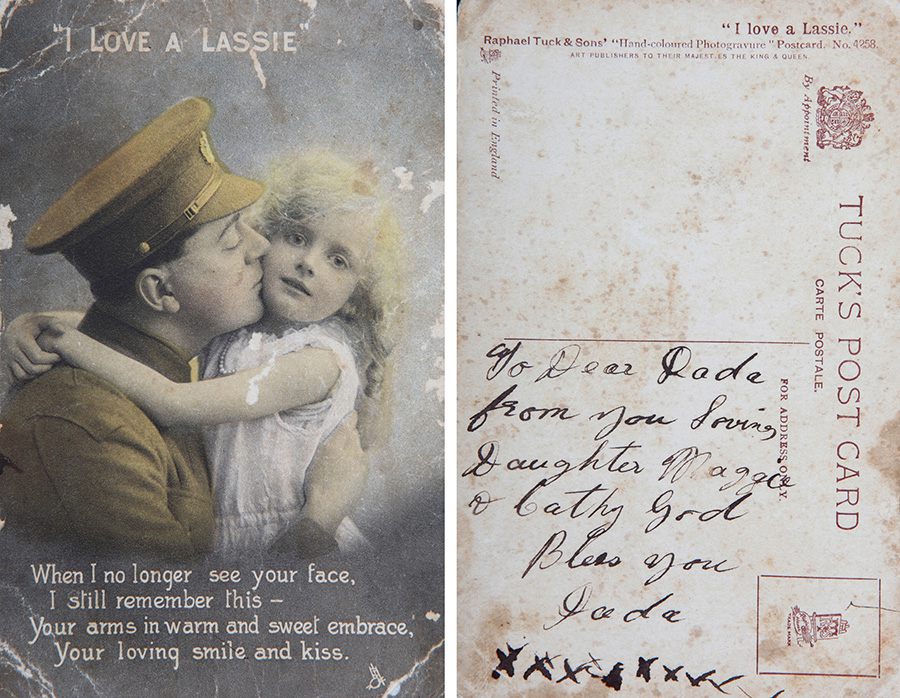 "I LOVE A LASSIE"
When I no longer see your face,
I still remember this –
Your arms in warm and sweet embrace,
Your loving smile and kiss.
"I love a Lassie."
Raphael Tuck & Sons' "Hand-coloured Photogravure" Postcard. No. 4258.
ART PUBLISHERS TO THEIR MAJESTIES THE KING & QUEEN.
Printed in England
By Appointment
TUCK'S POST CARD
CARTE POSTALE.
FOR ADDRESS ONLY.
To Dear Dada
from you Loving
Daughter Maggie
& Cathy God
Bless you
Dada
xxxx xxxx
TRADE MARK